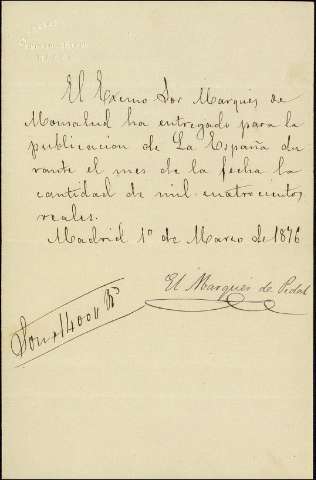 El Exmo Sor Marqués de
Monsalud ha entregado para la
publicacion de La España du
rante el mes de la fecha la
cantidad de mil cuatrocientos
reales.
Madrid 1º de Marzo de 1876
El Marqués de Pidal
Son 1400 Rs